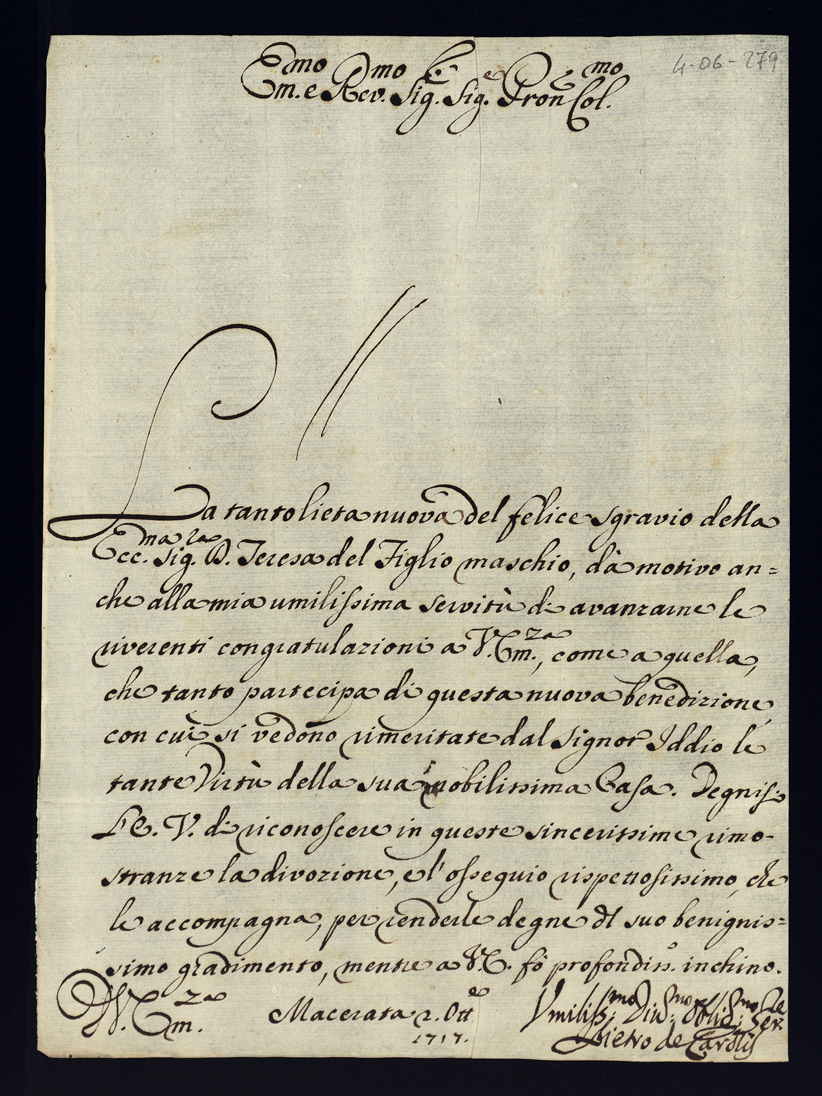 4-06-279
Em.mo e Rev.mo Sig.r Sig.e Pron Col.mo
La tanto lieta nuova del felice sgravio della
Ecc.ma Sig.ra D. Teresa del Figlio maschio, dà motivo an=
che alla mia umilissima servitù di avanzarne le
riverenti congratulazioni a V. Em.za, come a quella,
che tanto partecipa di questa nuova benedizione,
con cui si vedono rimeritate dal Signor Iddio le
tante Virtù della sua nobilissima Casa. Degnisi
l'E. V. di riconoscere in queste sincerissime rimo-
stranze la divozione, e l'ossequio rispettosissimo, che
le accompagna, per renderle degne dl suo benignis=
simo gradimento, mentre a V. E. fò profondiss.o inchino.
D V. Em.za
Macerata 2. Ott.e
1717.
Vmiliss.mo Diu.mo Oblig.mo Ser.re
Pietro de Carolis